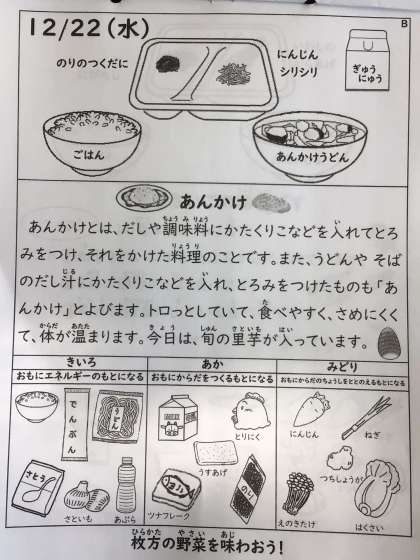 B
12/22(水)
のりのつくだに
にんじん
シリシリ
ぎゅう
にゅう
ごはん
あんかけうどん
あんかけ
あんかけとは、だしや調味料にかたくりこなどを入れてとろ
みをつけ、それをかけた料理のことです。また、うどんや そば
のだし汁にかたくりこなどを入れ、とろみをつけたものも「あ
んかけ」とよびます。トロっとしていて、食べやすく、さめにくく
て、体が温まります。今日は、旬の里芋が入っています。
きいろ
あか
みどり
おもにエネルギーのもとになる
おもにからだをつくるもとになる
おもにからだのちょうしをととのえるもとになる
でんぷん
うどん
さとう
さといも
あぶら
とりにく
うすあげ
ツナフレーク
のり
にんじん
ねぎ
つちしょうが
えのきたけ
はくさい
枚方の野菜を味わおう!